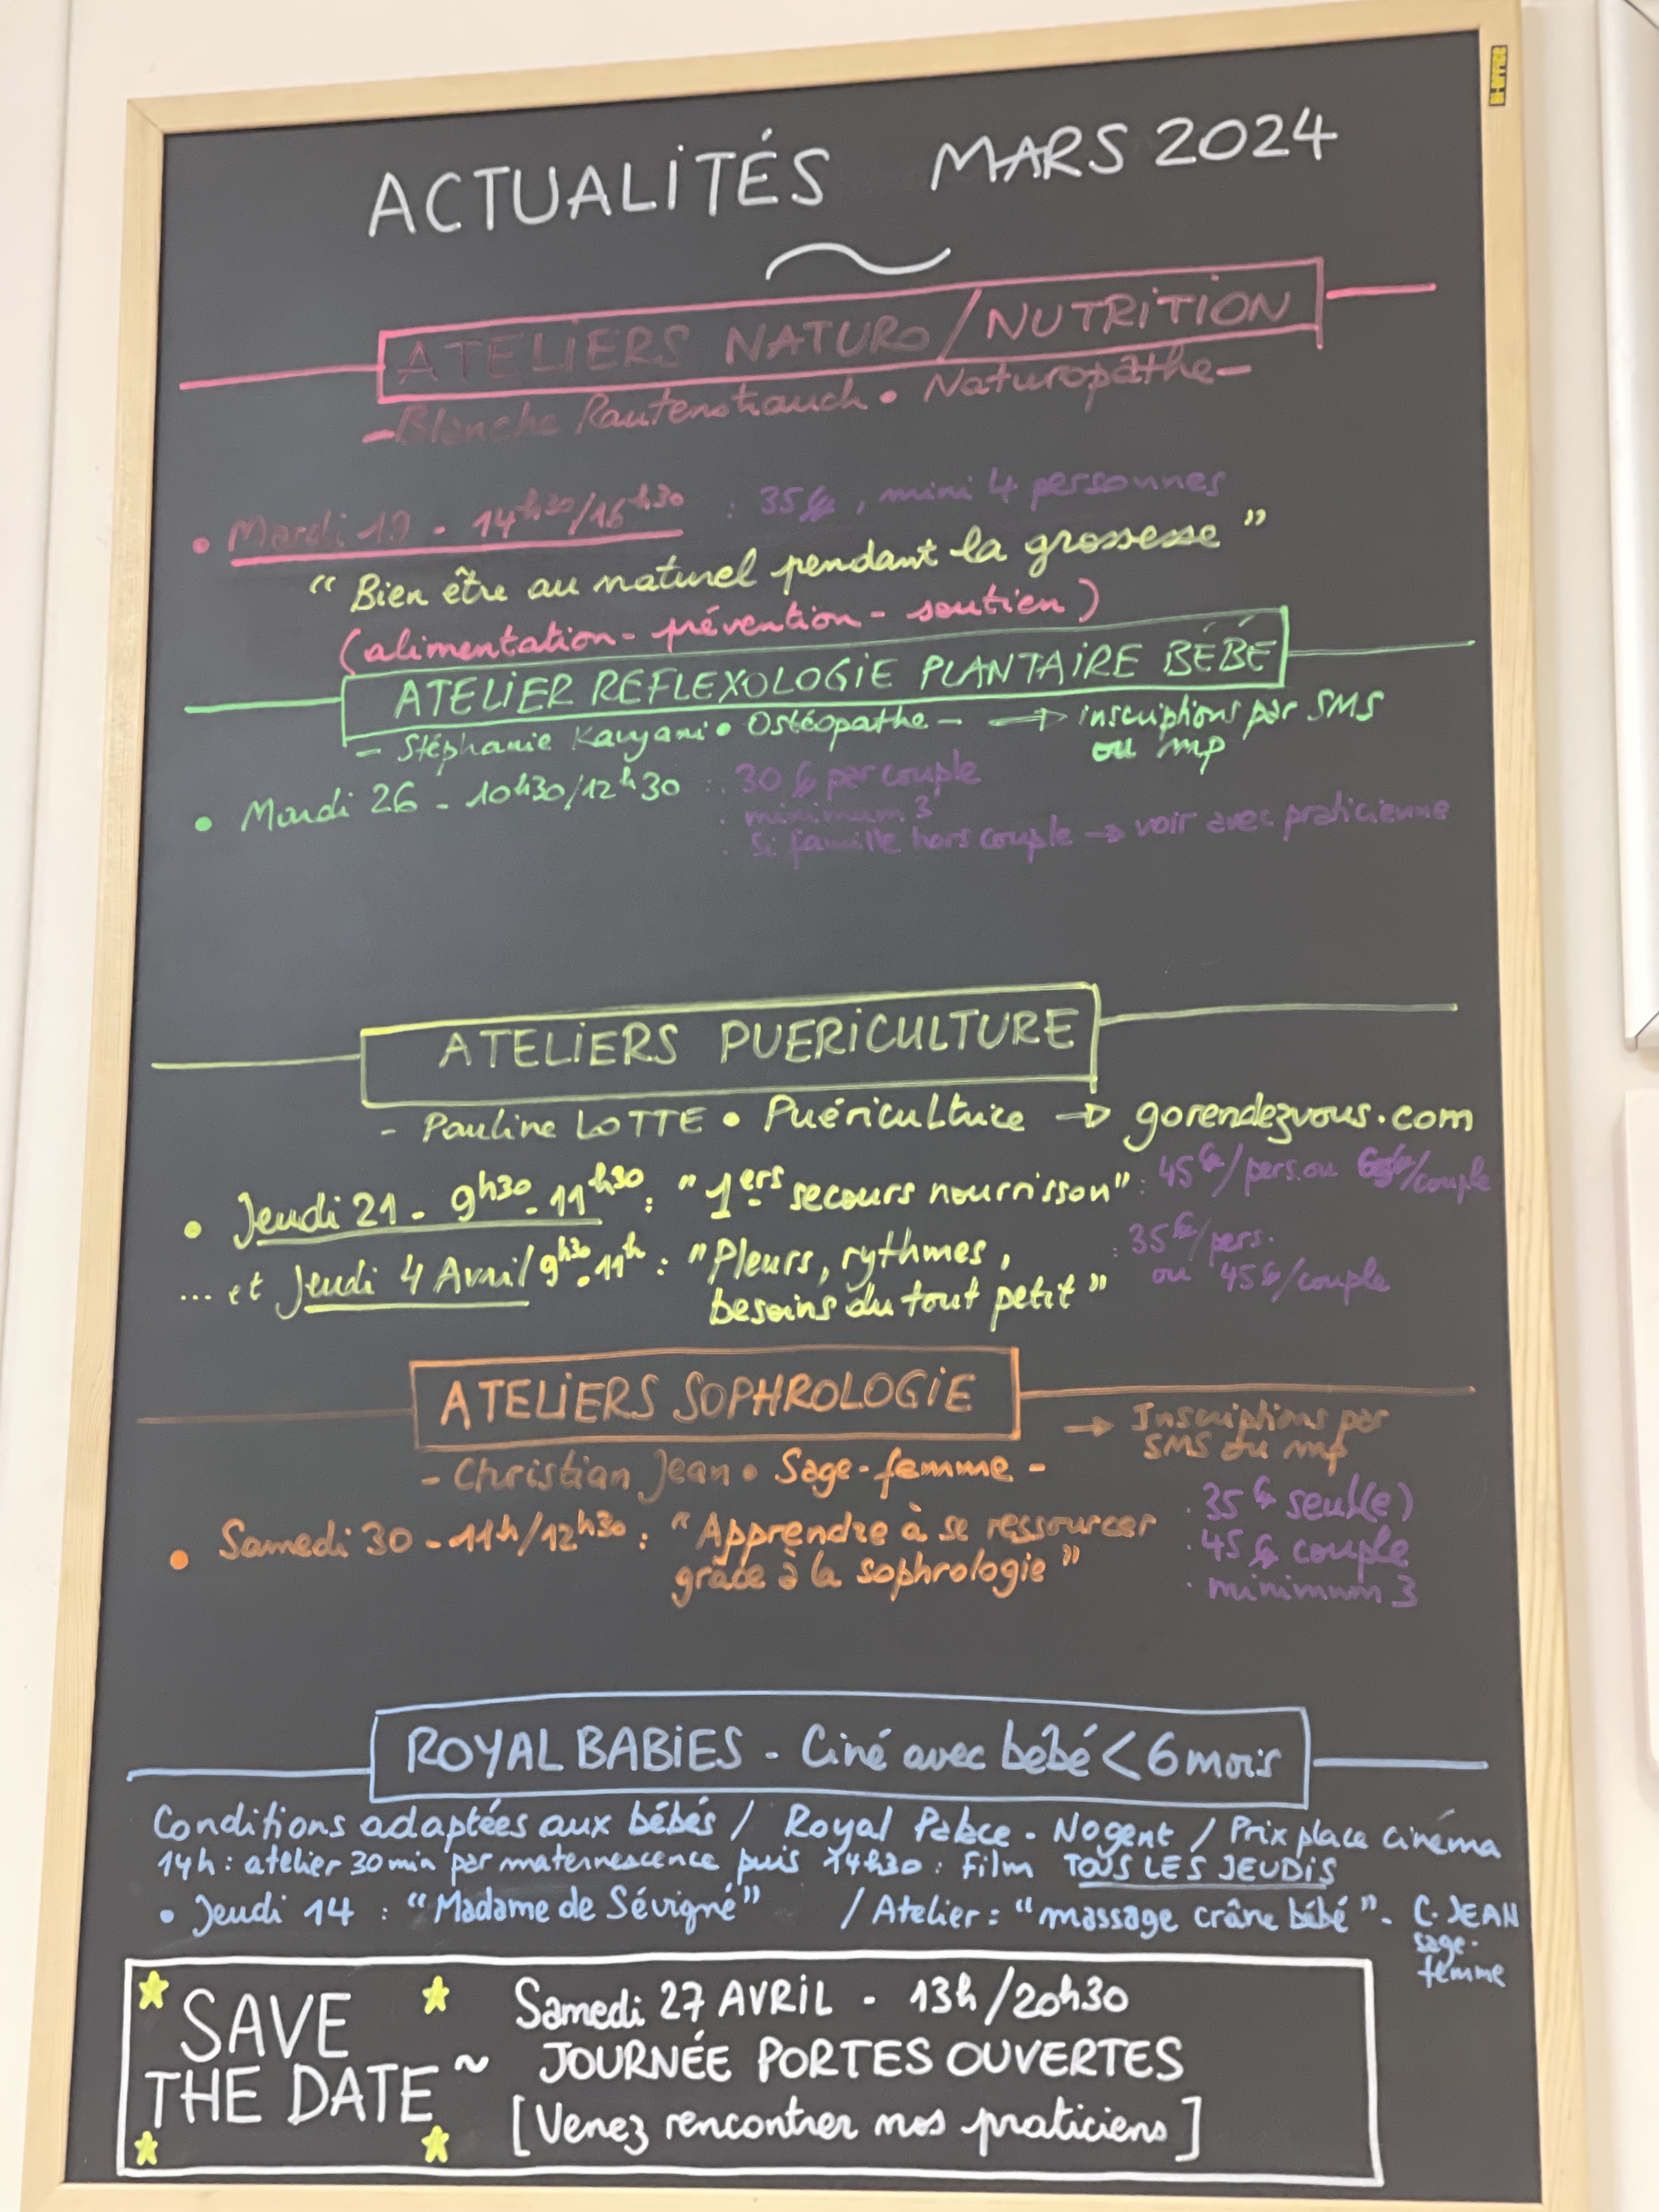 ACTUALITÉS MARS 2024
ATELIERS NATURO/NUTRITION
- Blanche Rautenstrauch • Naturopathe -
• Mardi 19 - 14h30/16h30 : 35€, mini 4 personnes
“ Bien être au naturel pendant la grossesse ”
(alimentation - prévention - soutien)
ATELIER REFLEXOLOGIE PLANTAIRE BÉBÉ
- Stéphanie Kavyani • Ostéopathe - → inscriptions par SMS
ou mp
• Mardi 26 - 10h30/12h30 : . 30 € par couple
. minimum 3
. Si famille hors couple → voir avec praticienne
ATELIERS PUERICULTURE
- Pauline LOTTE • Puéricultrice → gorendezvous.com
• Jeudi 21 - 9h30 - 11h30 : “ 1ers secours nourrisson” : 45€/pers. ou /couple
... et Jeudi 4 Avril 9h30 - 11h : “Pleurs, rythmes, : 35€/pers.
besoins du tout petit ” ou 45€/couple
ATELIERS SOPHROLOGIE
→ Inscriptions par
SMS ou mp
- Christian Jean • Sage-femme -
• Samedi 30 - 11h/12h30 : “ Apprendre à se ressourcer
grâce à la sophrologie ”
. 35 € seul(e)
. 45 € couple
. minimum 3
ROYAL BABIES - Ciné avec bébé < 6 mois
Conditions adaptées aux bébés / Royal Palace - Nogent / Prix place cinéma
14h : atelier 30 min par maternescence puis 14h30 : Film TOUS LES JEUDIS
• Jeudi 14 : “Madame de Sévigné” / Atelier : “massage crâne bébé” - C. JEAN
sage-
femme
SAVE
THE DATE ~
Samedi 27 AVRIL - 13h/20h30
JOURNÉE PORTES OUVERTES
[Venez rencontrer nos praticiens]